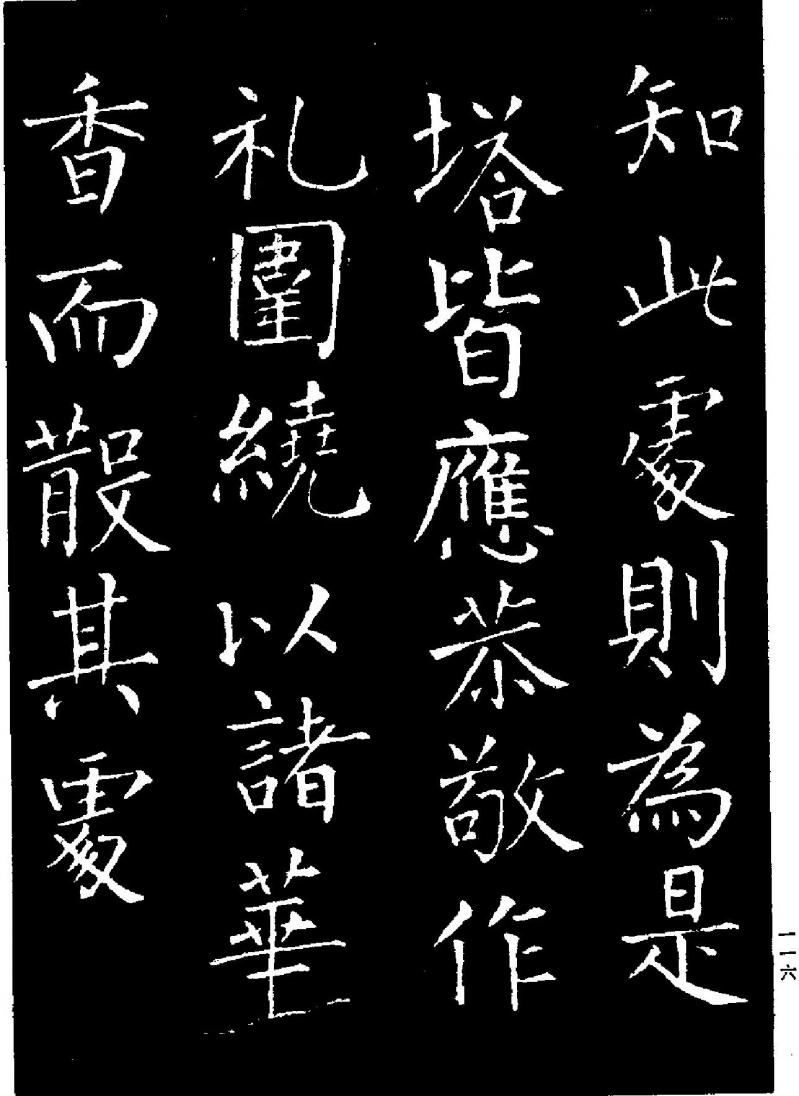 知此處則為是
塔皆應恭敬作
礼圍繞以諸華
香而散其處
一一六